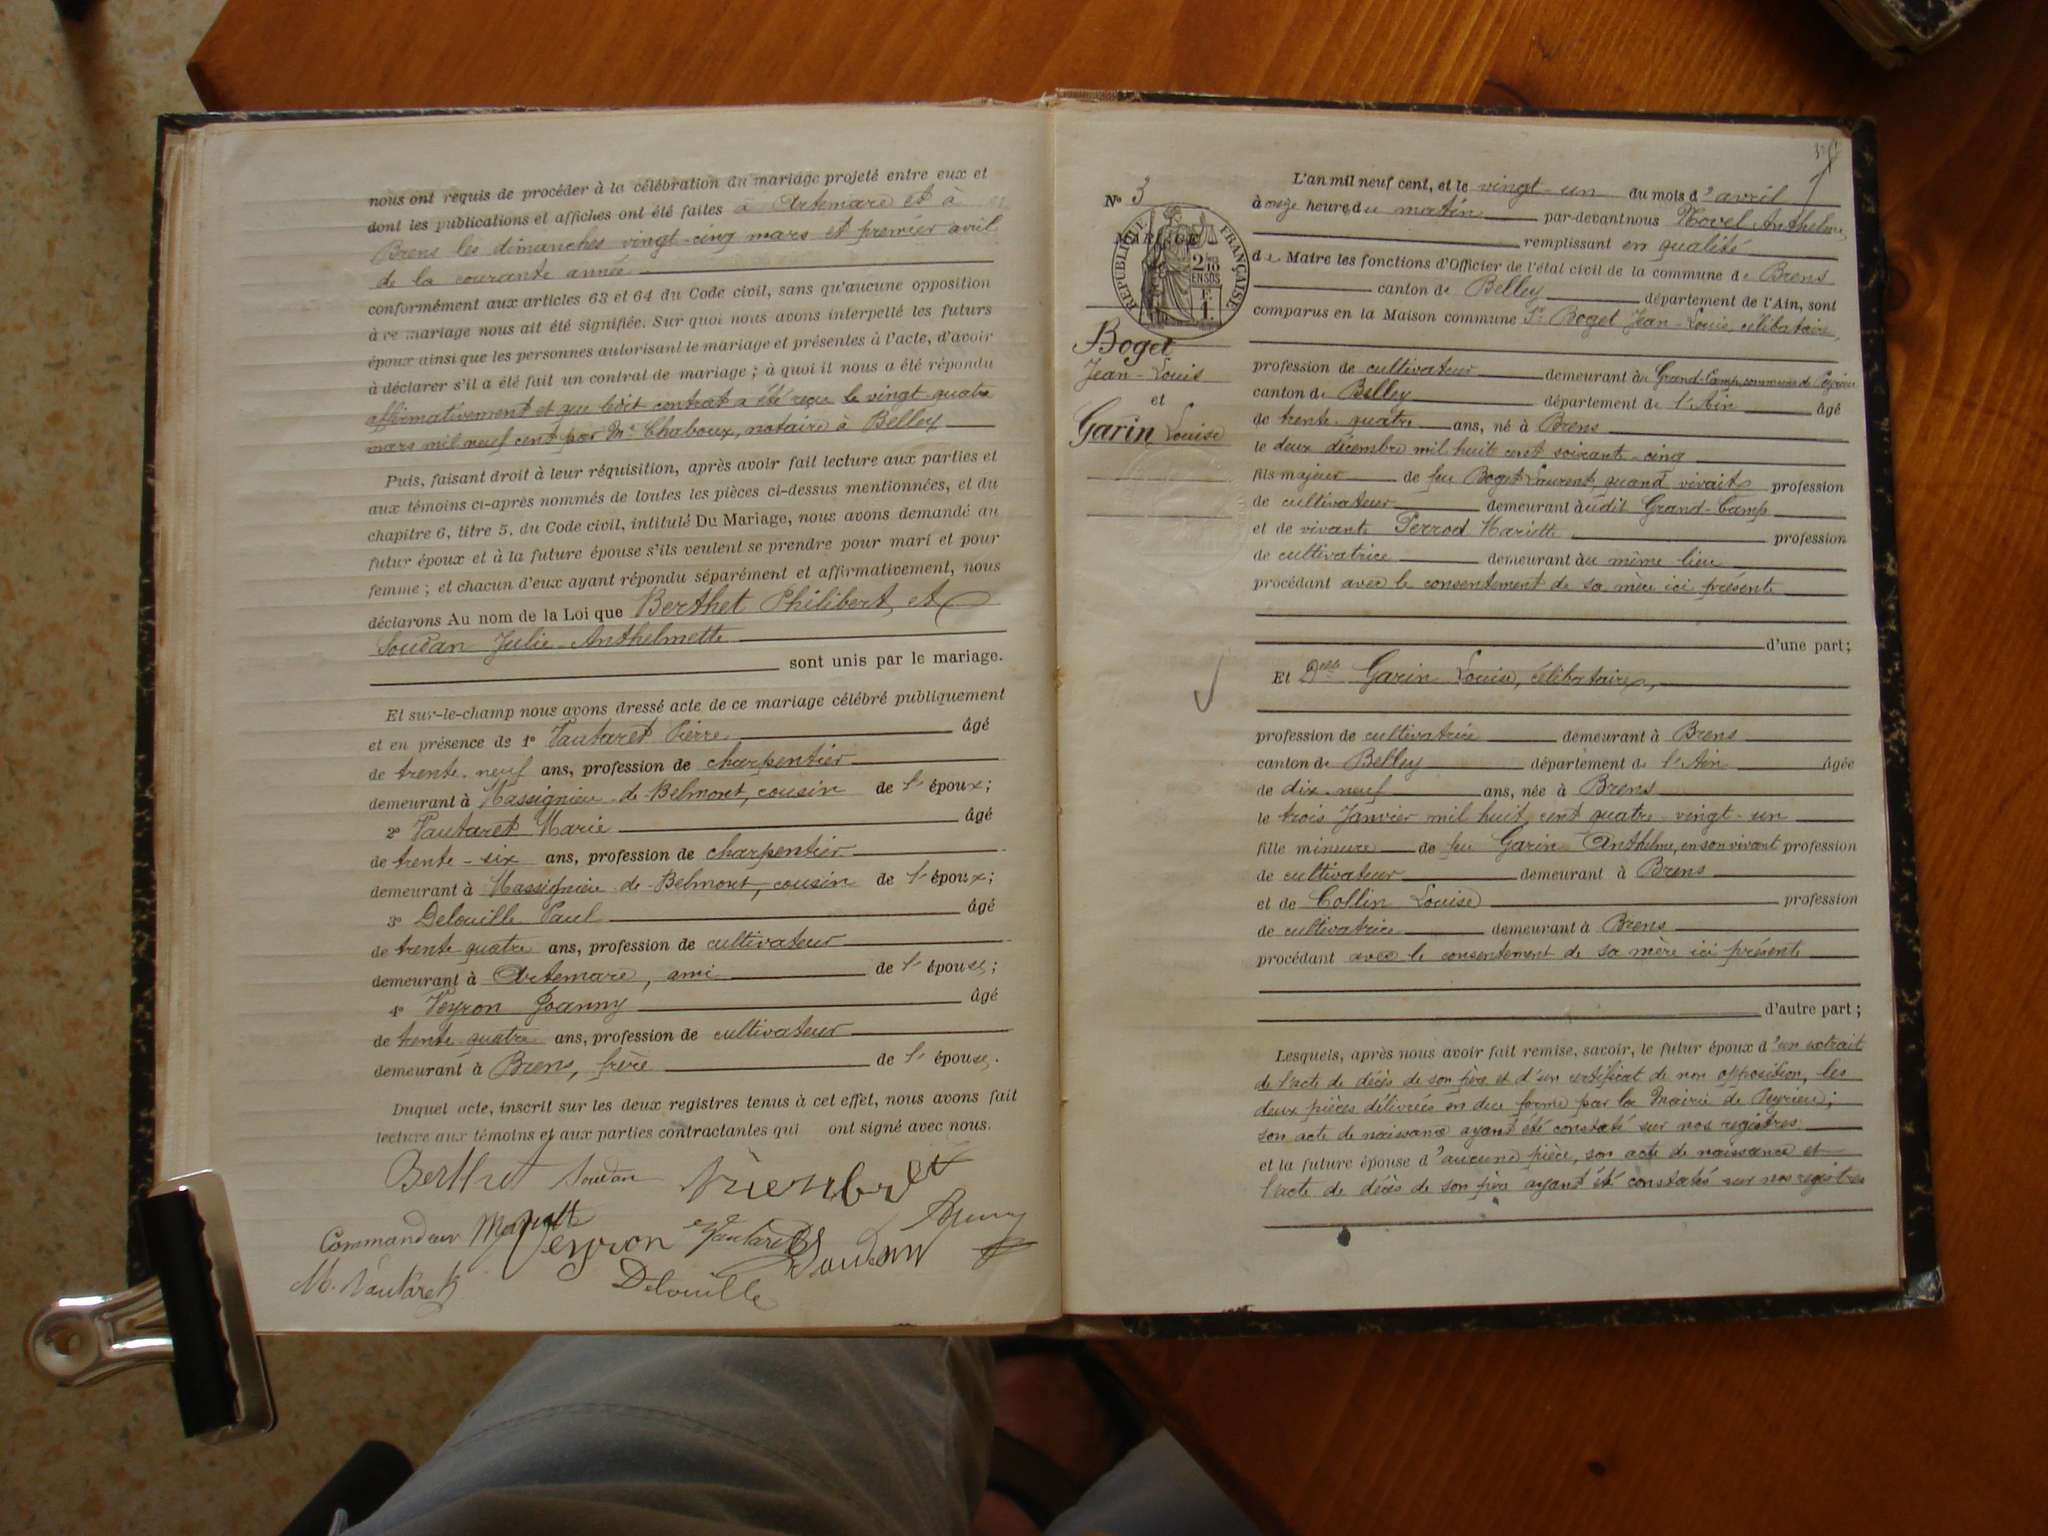 nous ont requis de procéder à la célébration du mariage projeté entre eux et
dont les publications et affiches ont été faites à Artemare et à
Brens les dimanches vingt-cinq mars et premier avril
de la courante année
conformément aux articles 63 et 64 du Code civil, sans qu'aucune opposition
à ce mariage nous ait été signifiée. Sur quoi nous avons interpellé les futurs
époux ainsi que les personnes autorisant le mariage et présentes à l'acte, d'avoir
à déclarer s'il a été fait un contrat de mariage ; à quoi il nous a été répondu
affirmativement et que ledit contrat a été reçu le vingt quatre
mars mil neuf cent par Me Chaboux, notaire à Belley
Puis, faisant droit à leur réquisition, après avoir fait lecture aux parties et
aux témoins ci-après nommés de toutes les pièces ci-dessus mentionnées, et du
chapitre 6, titre 5. du Code civil, intitulé Du Mariage, nous avons demandé au
futur époux et à la future épouse s'ils veulent se prendre pour mari et pour
femme ; et chacun d'eux ayant répondu séparément et affirmativement, nous
déclarons Au nom de la Loi que Berthet Philibert et
Soudan Julie-Anthelmette
sont unis par le mariage.
Et sur-le-champ nous avons dressé acte de ce mariage célébré publiquement
et en présence de 1o Vautaret Pierre âgé
de trente-neuf ans, profession de charpentier
demeurant à Massignieu-de-Belmont, cousin de l' époux ;
2o Vautaret Marie âgé
de trente-six ans, profession de charpentier
demeurant à Massignieu de Belmont, cousin de l' époux ;
3o Delouille Paul âgé
de trente quatre ans, profession de cultivateur
demeurant à Artemare, ami de l' épouse ;
4o Veyron Joanny âgé
de trente quatre ans, profession de cultivateur
demeurant à Brens, frère de l' épouse.
Duquel acte, inscrit sur les deux registres tenus à cet effet, nous avons fait
lecture aux témoins et aux parties contractantes qui ont signé avec nous.
Berthet Soudan
Commandeur Veyron Vautaret Soudan
M. Vautaret Delouille
No 3
MARIAGE
RÉPUBLIQUE FRANÇAISE
2/10 EN SUS
1 F.
Boget
Jean-Louis
et
Garin Louise
L'an mil neuf cent, et le vingt-un du mois d'avril
à onze heures du matin par-devant nous Novel Anthelme
remplissant en qualité
de Maire les fonctions d'Officier de l'état civil de la commune de Brens
canton de Belley département de l'Ain, sont
comparus en la Maison commune Sr Boget Jean-Louis, célibataire,
profession de cultivateur demeurant à Grand-Camp, commune de Peyrieu
canton de Belley département de l'Ain âgé
de trente-quatre ans, né à Brens
le deux décembre mil huit cent soixante-cinq
fils majeur de feu Boget Laurent, quand vivait profession
de cultivateur demeurant audit Grand-Camp
et de vivante Perrod Mariette profession
de cultivatrice demeurant au même lieu
procédant avec le consentement de sa mère ici présente
d'une part ;
Et Delle Garin Louise, célibataire,
profession de cultivatrice demeurant à Brens
canton de Belley département de l'Ain âgée
de dix-neuf ans, née à Brens
le trois Janvier mil huit cent quatre-vingt-un
fille mineure de feu Garin Anthelme, en son vivant profession
de cultivateur demeurant à Brens
et de Collin Louise profession
de cultivatrice demeurant à Brens
procédant avec le consentement de sa mère ici présente
d'autre part ;
Lesquels, après nous avoir fait remise, savoir, le futur époux d'un extrait
de l'acte de décès de son père et d'un certificat de non opposition, les
deux pièces délivrées en due forme par la Mairie de Peyrieu ;
son acte de naissance ayant été constaté sur nos registres
et la future épouse d'aucune pièce, son acte de naissance et
l'acte de décès de son père ayant été constatés sur nos registres